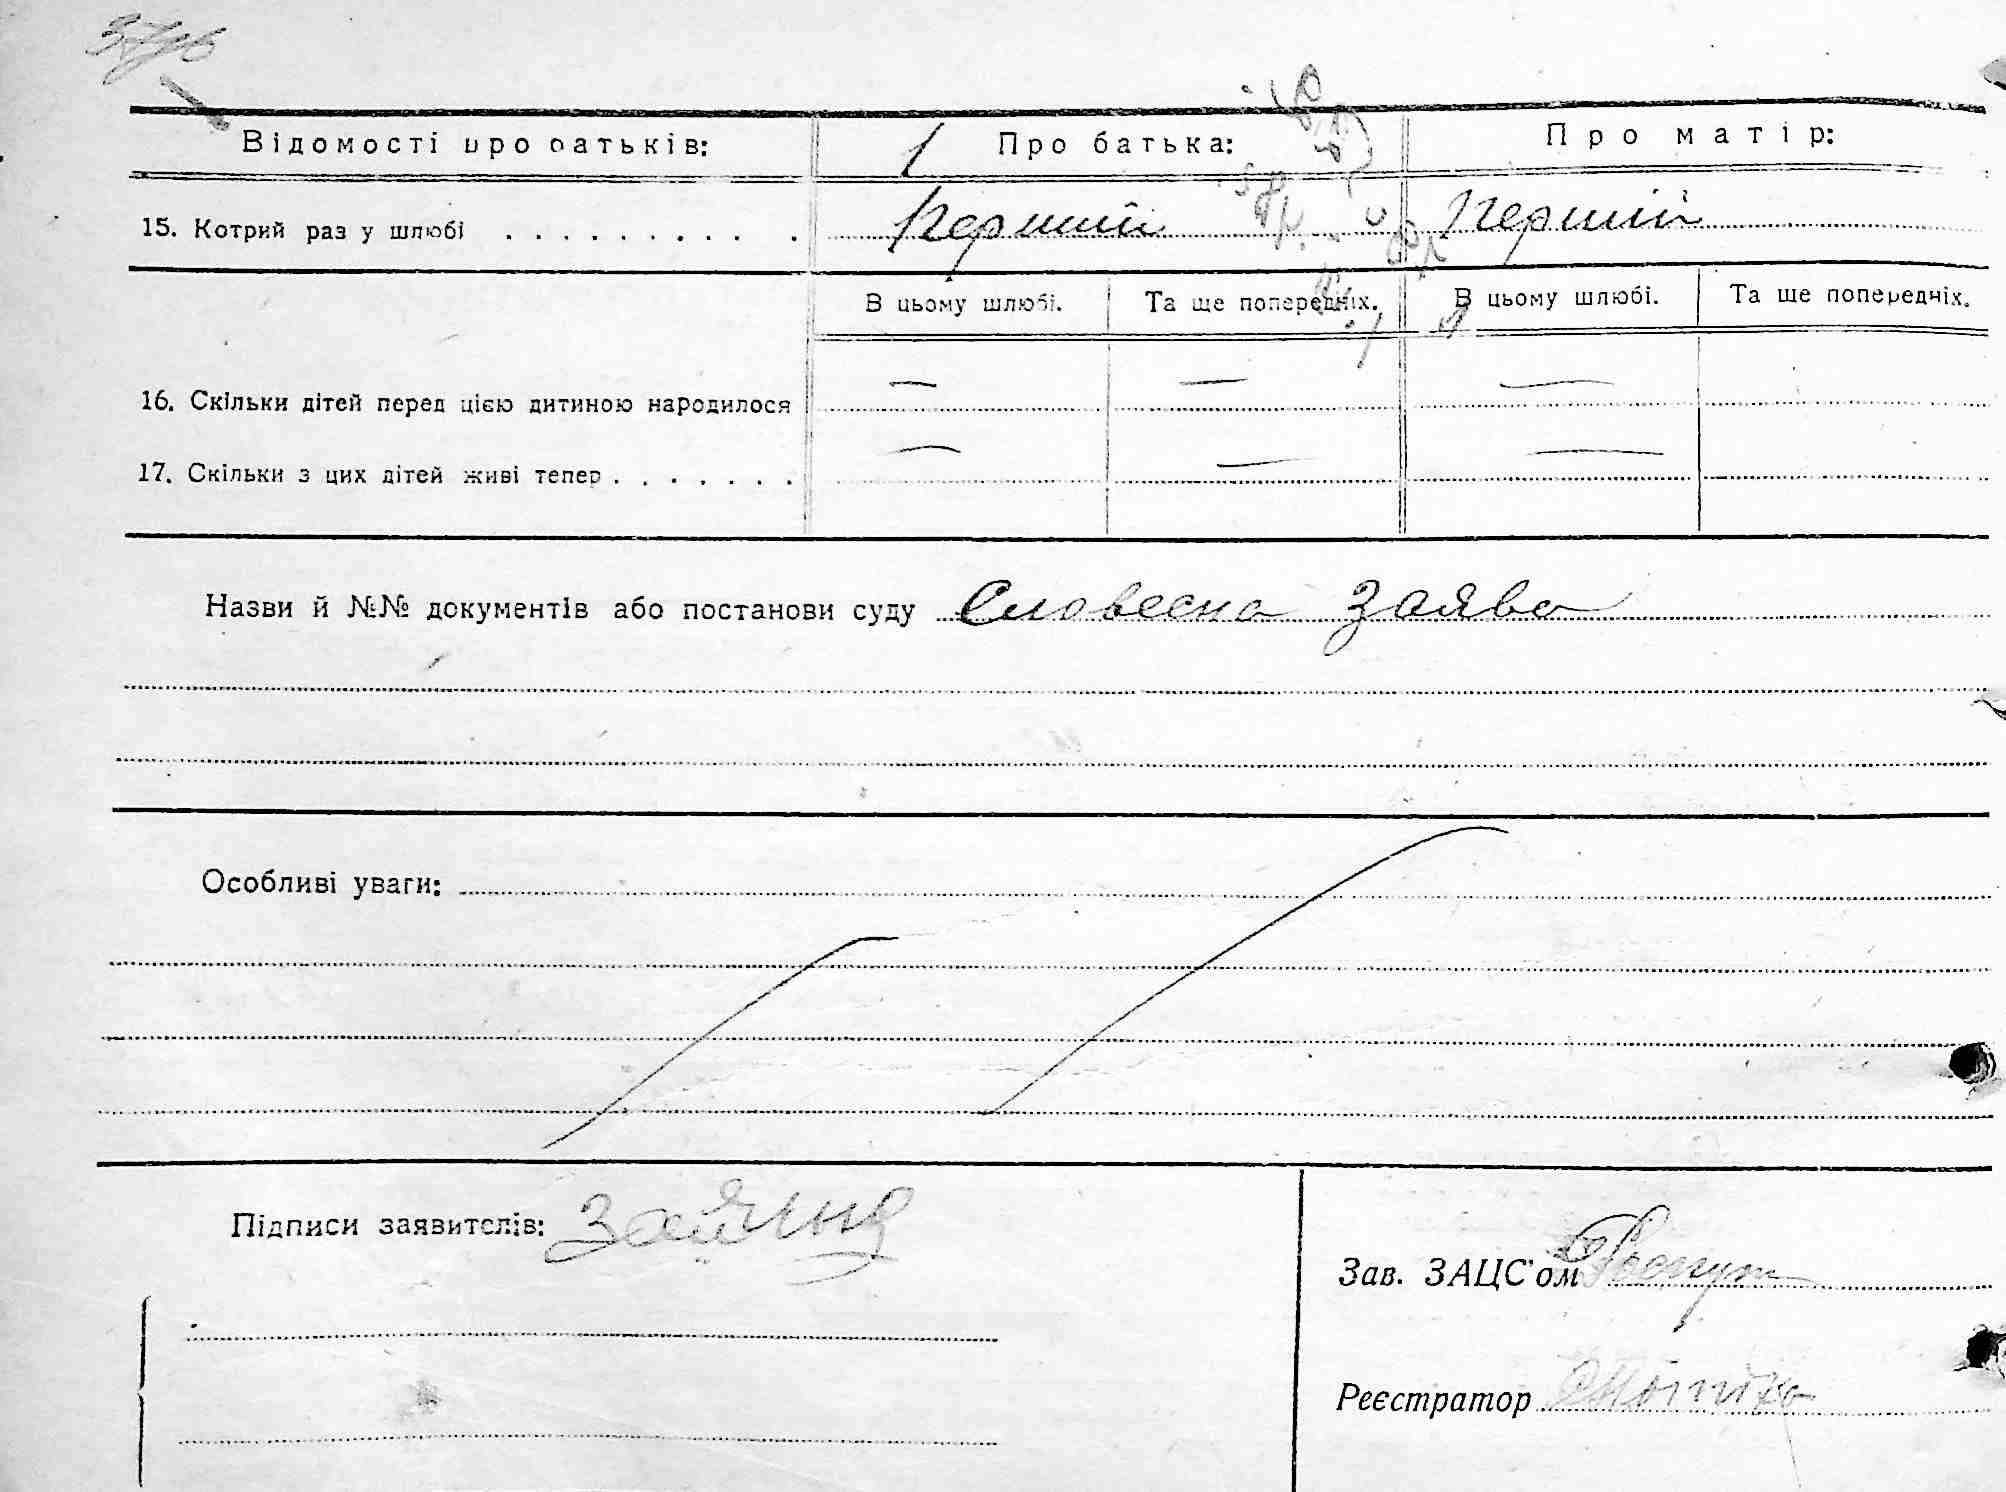 Відомості про батьків: Про батька: Про матір:
15. Котрий раз у шлюбі . . . . . . . . . . Перший Перший
В цьому шлюбі. Та ще попередніх. В цьому шлюбі. Та ще попередніх.
16. Скільки дітей перед цією дитиною народилося — — —
17. Скільки з цих дітей живі тепер . . . . . . . — — —
Назви й №№ документів або постанови суду Словесна Заява
Особливі уваги:
Підписи заявителів:
Зав. ЗАЦС'ом
Реєстратор